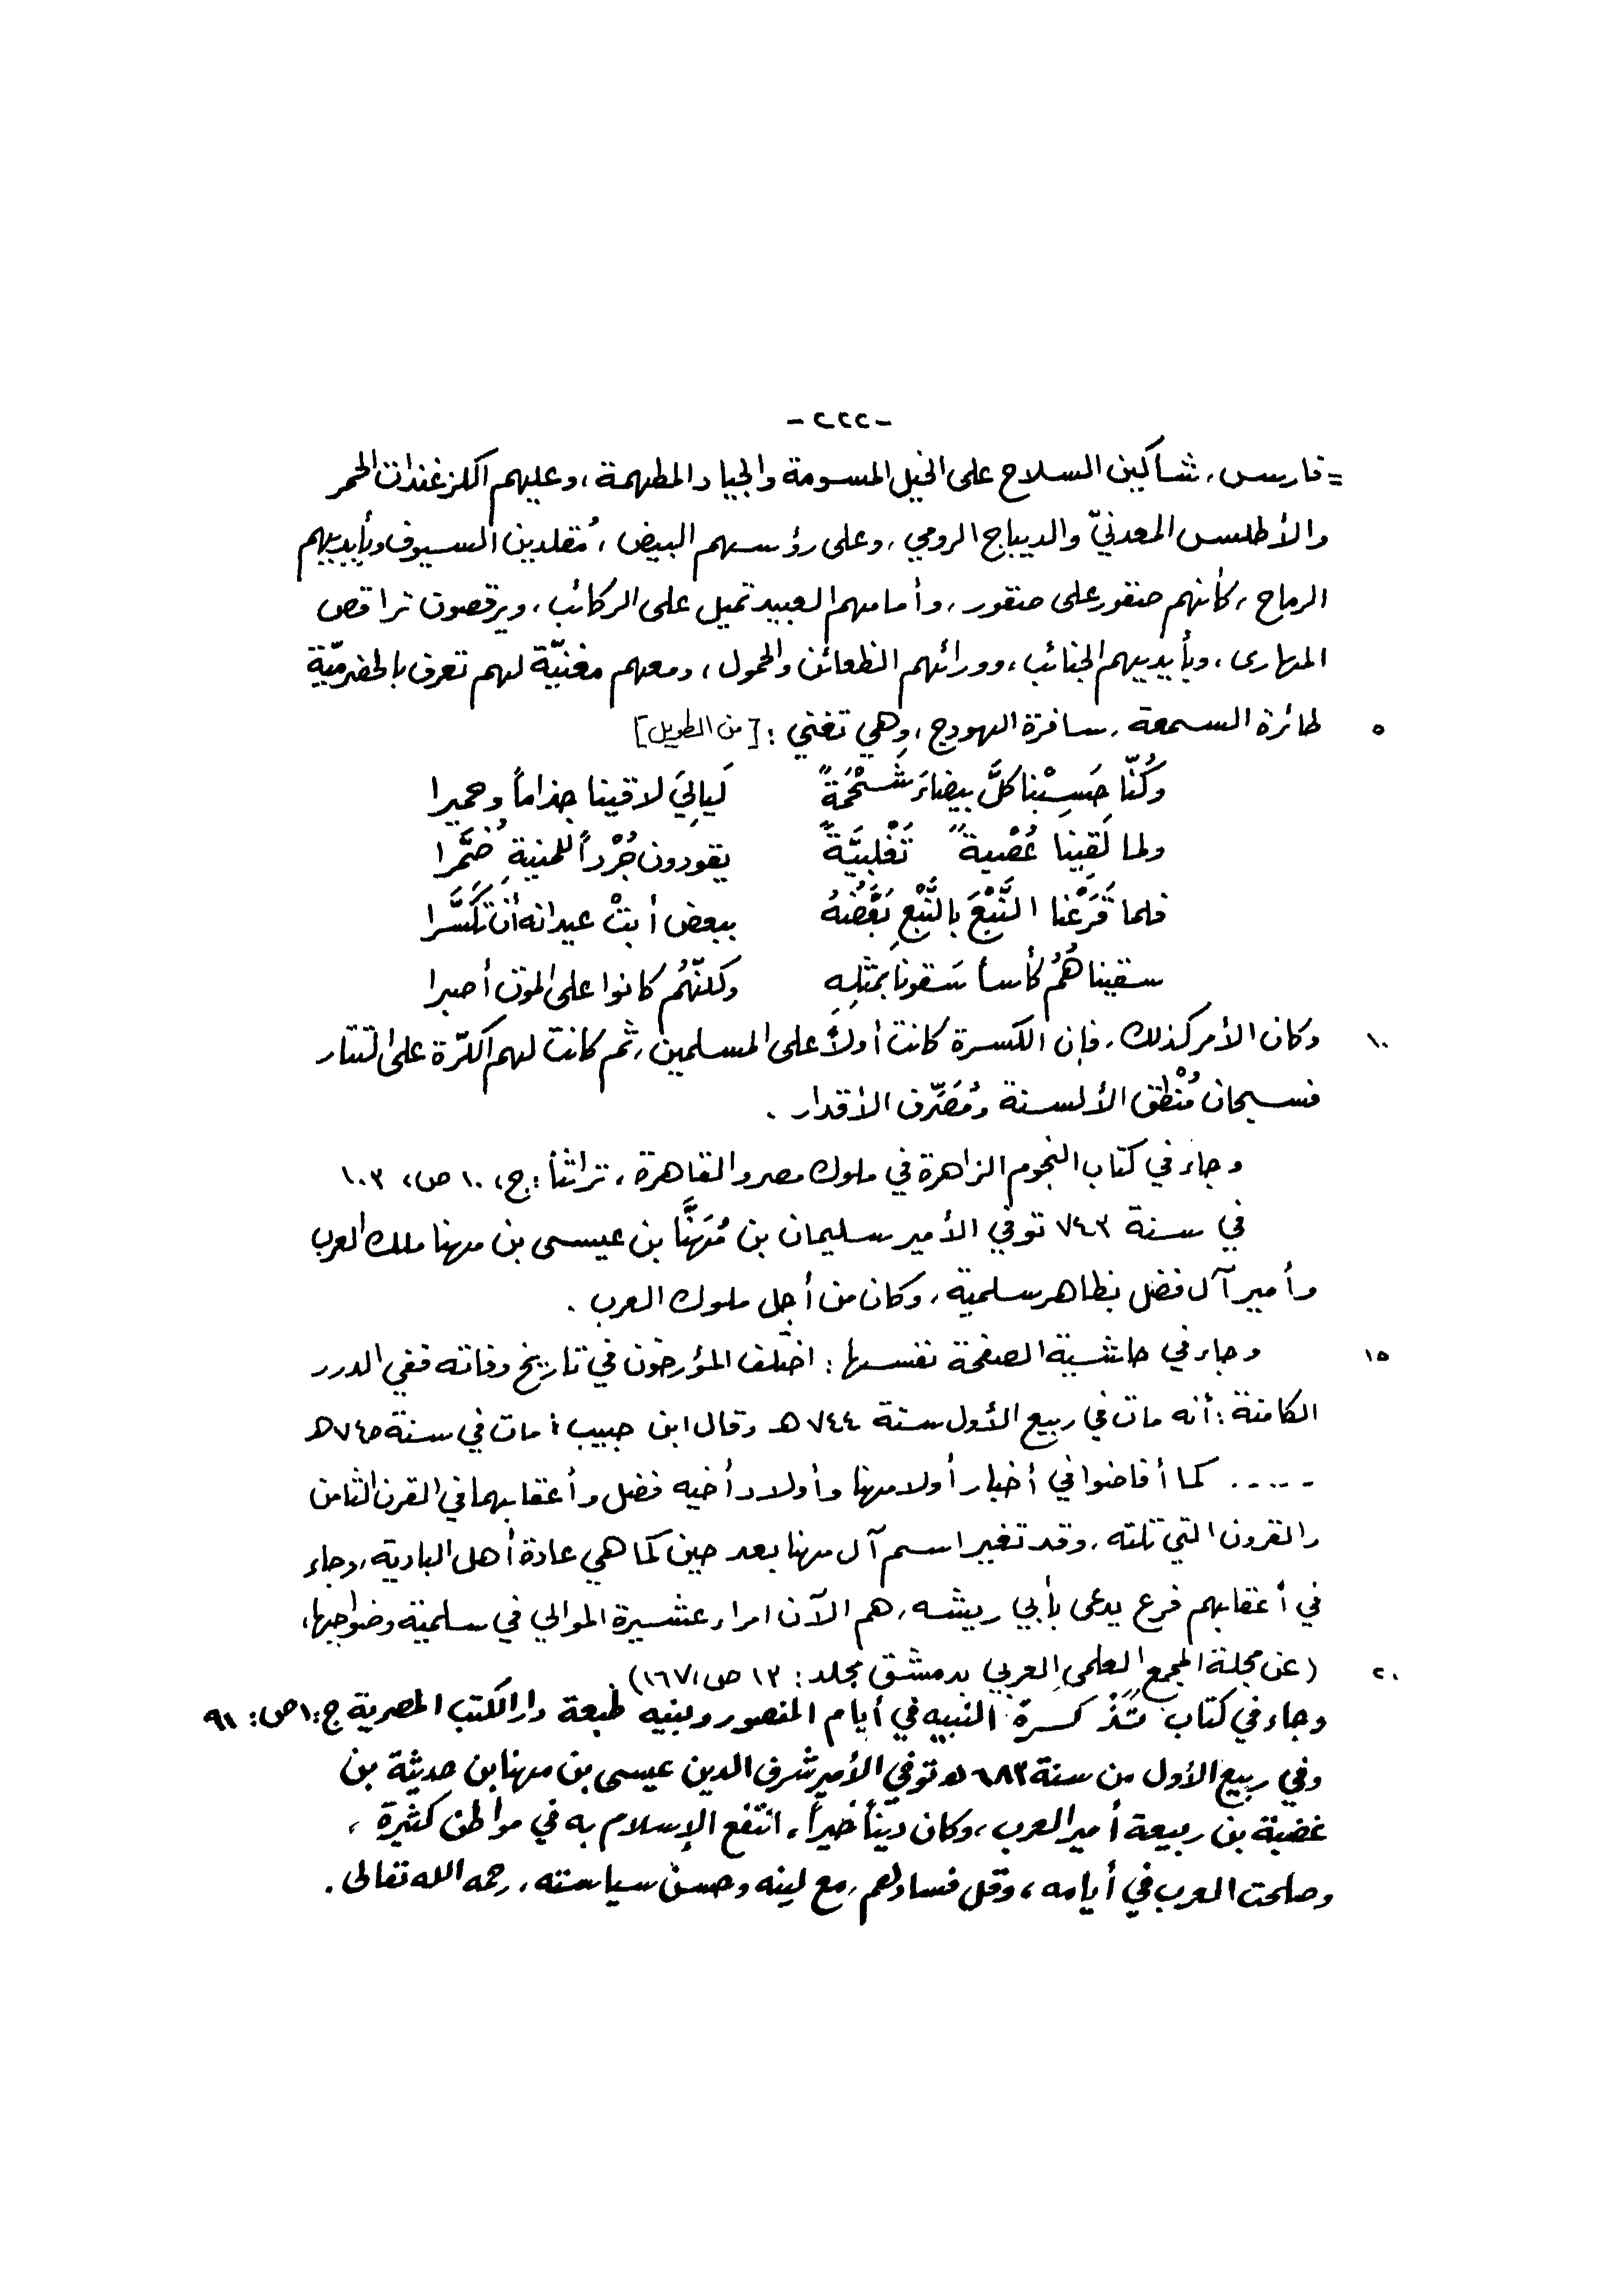 -٢٢٢-
= فارس، شاكين السلاح على الخيل المسومة والجياد المطهمة، وعليهم الكزغندات الحمر
والأطلس المعدنيّ والديباج الرومي، وعلى رؤسهم البيض، مُقلدين السيوف وبأيديهم
الرماح، كأنهم صقور على صقور، وأمامهم العبيد تميل على الركائب، ويرقصون تراقص
المهارى، وبأيديهم الجنائب، وورائهم الظعائن والحمول، ومعهم مغنيّة لهم تعرف بالحضرميّة
٥ طائرة السمعة، سافرة الهودج، وهي تغني: [من الطويل]
وَكُنّا حَسِبْنا كلَّ بيضاءَ شَحْمَةً لَيالِيَ لاقينا جذاماً وحميرا
ولما لَقِينا عُصْبةً تَغْلِبيَّةً يقودون جُرْداً للمنيةِ ضُمَّرا
فلما قَرَعْنا النَّبْعَ بالنَّبْعِ بَعْضَهُ ببعض أبتْ عيدانه أن تَكَسَّرا
سقيناهُمُ كأسا سَقونا بمثلِهِ ولكنَّهُم كانوا على الموت أصبرا
١٠ وكان الأمر كذلك، فإن الكسرة كانت أولاً على المسلمين، ثم كانت لهم الكرّة على التتار
فسبحان مُنْطِق الألسنة ومُصَرِّف الأقدار .
وجاء في كتاب النجوم الزاهرة في ملوك مصر والقاهرة، تراثنا: ج، ١٠ ص، ١٠٣
في سنة ٧٤٣ توفي الأمير سليمان بن مُهَنَّا بن عيسى بن مهنا ملك العرب
وأمير آل فضل بظاهر سلمية، وكان من أجل ملوك العرب .
١٥ وجاء في حاشية الصفحة نفسها: اختلف المؤرخون في تاريخ وفاته ففي الدرر
الكامنة: أنه مات في ربيع الأول سنة ٧٤٤ هـ وقال ابن حبيب: مات في سنة ٧٤٥ هـ
..... كما أفاضوا في أخبار أولاد مهنا وأولاد أخيه فضل وأعقابهما في القرن الثامن
والقرون التي تلته، وقد تغير اسم آل مهنا بعد حين كما هي عادة أهل البادية، وجاء
في أعقابهم فرع يدعى بأبي ريشه، هم الآن امراء عشيرة الموالي في سلمية وضواحيها،
٢٠ (عن مجلة المجمع العلمي العربي بدمشق مجلد: ١٣ ص، ١٦٧)
وجاء في كتاب تَذْكرة النبيه في أيام المنصور وبنيه طبعة دار الكتب المصرية ج: ١ ص: ٩١
وفي ربيع الأول من سنة ٦٨٣ هـ توفي الأمير شرف الدين عيسى بن مهنا بن حديثة بن
غضبة بن ربيعة أمير العرب، وكان ديّناً خيراً، انتفع الإسلام به في مواطن كثيرة،
وصلحت العرب في أيامه، وقل فسادهم، مع لينه وحسن سياسته، رحمه الله تعالى.